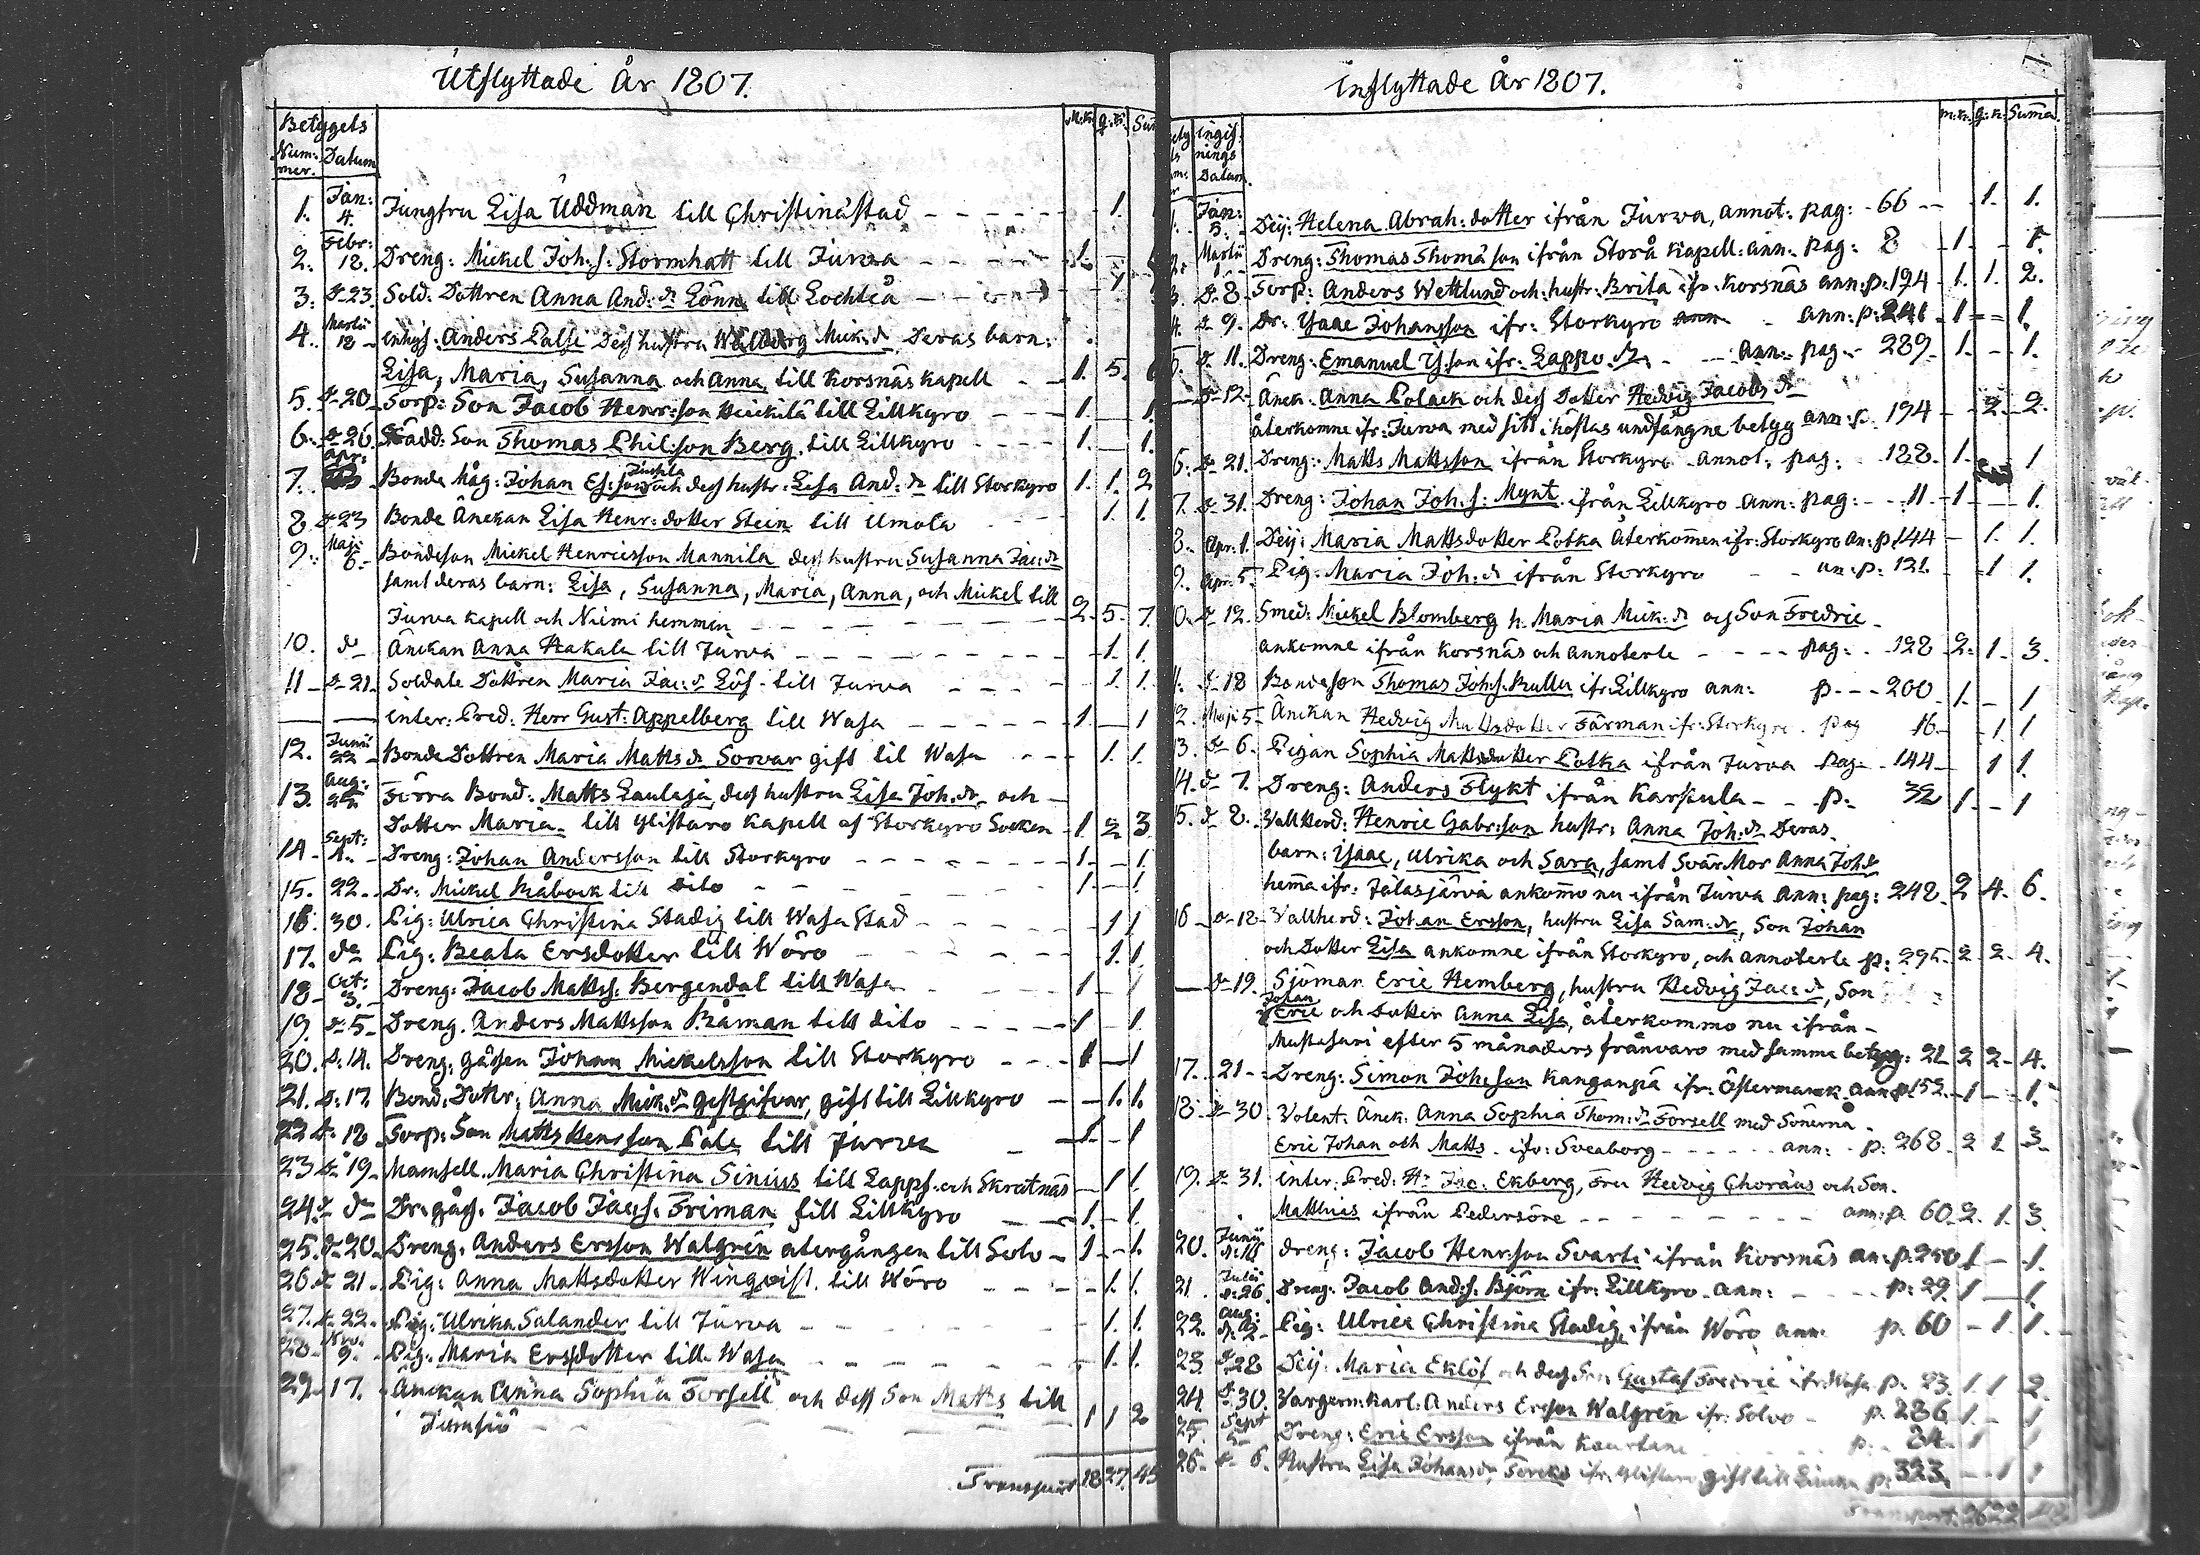 Utflyttade År 1807.
Betygets
Num:mer. Datum M:k. Q:k. Sum
1. Jan: 4. Jungfru Lisa Uddman till Christinæstad 1.
2. Febr: 18. Dreng: Mickel Joh: s: Stormhatt till Jurva 1.
3. d 23. Sold: Dottren Anna And: dr Lönn till Lochteå 1
4. Martii 18 Anders Palsi dess hustru Walborg Mick: dr Deras barn:
Lisa, Maria, Susanna och Anna till Korsnäs kapell 1. 5. 6
5. d 20 Torp: Son Jacob Henr: son Heickilä till Lillkyro 1. 1.
6. d 26. Son Thomas Phil: son Berg till Lillkyro 1. 1.
7. Apr: Bonde Måg: Johan Es: son och dess hustr: Lisa And: dr till Storkyro 1. 1. 2
8. d 23 Bonde Änckan Lisa Henr: dotter Stein till Umola 1. 1.
9. Maji 6. Bondeson Mickel Henricsson Mannila dess hustru Susanna Jac: dr
samt deras barn: Lisa, Susanna, Maria, Anna, och Mickel till
Jurva kapell och Niemi hemman 2 5. 7.
10. d Änckan Anna Hakala till Jurva 1. 1.
11 d 21. Soldate Dottren Maria Jac: dr Löf till Jurva 1. 1.
Inter: Pred: Herr Gust: Appelberg till Wasa 1. 1
12. Junii 22 Bonde Dottren Maria Matts dr Sorvar gift til Wasa 1. 1.
13. Aug: Förra Bond: Matts Laulaja, dess hustru Lisa Joh. dr och
Dotter Maria till Ylistaro Kapell af Storkyro Socken 1 2 3
14. Sept: 1. Dreng: Johan Andersson till Storkyro 1. 1.
15. 22. Dr: Mickel Råbock till dito 1. 1.
16. 30. Pig: Ulrica Christina Stadig till Wasa Stad 1 1.
17. do Pig: Beata Ersdotter till Wöro 1. 1.
18 Oct: 3. Dreng: Jacob Matts s. Bergendal till Wasa 1 1
19. d 5 Dreng. Anders Mattsson Råman till dito 1 1.
20. d. 14. Dreng: gåssen Johan Mickelsson till Storkyro 1 1
21. d. 17. Bond. Dottr: Anna Mick: dr gestgifvar, gift till Lillkyro 1. 1.
22 d. 18 Torp: Son Matts Henrsson Pale till Jurva 1. 1
23 d 19 Mamsell. Maria Christina Sinius till Lappf. och Skratnäs 1 1.
24. d do Dr: gåss. Jacob Jac: s. Friman till Lillkyro 1. 1.
25. d 20. Dreng: Anders Ersson Walgrén återgången till Solv 1 1.
26. d 21. Pig: Anna Mattsdotter Winqvist till Wöro 1. 1.
27. d 22. Pig: Ulrika Salander till Jurva 1. 1.
28. Nov: 9. Pig: Maria Ersdotter till Wasa 1. 1.
29. 17. Änckan Anna Sophia Forsell och dess Son Matts till
1 1 2
Transport 18 27. 45
Inflyttade År 1807.
Ingifnings Datum. m:k. q:k. Summa.
Jan: 5. Deij: Helena Abrah: dotter ifrån Jurwa, annot: pag: 66 1. 1.
2. Martii 1 Dreng: Thomas Thomæ son ifrån Storå kapell: ann: pag: 8 1. 1.
3. d 8. Torp: Anders Wettlund och hustr: Brita ifr: Korsnäs ann: p: 194 1. 1. 2.
4. d 9. Dr: Isaac Johansson ifr: Storkyro ann: p: 241 1 1.
5. d 11. Dreng: Emanuel Is: son ifr: Lappo ann: pag: 289 1. 1.
d 12. Änck: Anna Polack och dess Dotter Hedvig Jacobs dr
återkomne ifr: Jurva med sitt i höstas undfångne betyg ann: p. 194 2. 2.
6. d 21. Dreng: Matts Mattsson ifrån Storkyro annot: pag: 128 1. 1
7. d 31. Dreng: Johan Joh: s: Mynt ifrån Lillkyro ann: pag: 11 1 1.
8. Apr: 1. Deij: Maria Mattsdotter Potka återkommen ifr: Storkyro an: p: 144 1. 1.
9. Apr: 5 Pig: Maria Joh: dr ifrån Storkyro an: p: 121 1 1.
0. d 12. Smed: Mickel Blomberg h. Maria Mick: dr och Son Fredric
ankomne ifrån Korsnäs och annoterte pag: 128 2. 1. 3.
11. d 18 Bondeson Thomas Joh: s. ifr: Lillkyro ann: p. 200 1. 1
12. Maji 5 Änckan Hedvig Färman ifr: Storkyro. pag 16. 1 1
13. d 6. Pigan Sophia Mattsdotter Potka ifrån Jurva pag 144 1 1.
14. d 7. Dreng: Anders Flykt ifrån Karstula p: 32 1 1
15. d 8. Vallherd: Henric Gabr: son hustr: Anna Joh: dr Deras
barn: Isaac, Ulrika och Sara, samt Svär Mor Anna Joh: dr
hemma ifr: Jalasjärvi ankommo nu ifrån Jurva ann: pag: 248 2 4. 6.
16 d 18 Vallherd: Johan Ersson, hustru Lisa Sam: dr, Son Johan
och Dotter Lisa ankomne ifrån Storkyro, och annoterte p: 295 2 2 4.
d 19. Sjöman Eric Hemberg, hustru Hedvig Jac: dr, Son
Johan
Eric och Dotter Anna Lisa, återkommo nu ifrån
Mustasari efter 5 månaders frånvaro med samma betyg: 21 2 2 4.
17. 21 Dreng: Simon Joh: son Kanganpä ifr: Östermark ann: p. 152 1 1.
18. d 30. Volent: Änck: Anna Sophia Thom: dr Forsell med Sönerna
Eric Johan och Matts ifr: Sveaborg ann: p: 268 2 1 3
19. d 31. Inter: Pred: Hr Jac: Ekberg, Fru Hedvig Choräus och Son
Matthias ifrån Pedersöre ann: p. 60 2. 1. 3
20. Junii d: 16 Dreng: Jacob Henr: son Svarti ifrån Korsnäs an: p. 250 1 1.
21. Julii d: 26. Dreng: Jacob And: s. Björn ifr: Lillkyro ann: p: 29 1 1.
22. Aug: d 2 Pig: Ulrica Christina Stadig ifrån Wöro ann: p. 60 1. 1.
23 d 28 Deij: Maria Eklöf och dess Son Gustaf Fredric ifr: Wasa p. 23. 1. 1 2.
24 d. 30. Vargerm: Karl: Anders Ersson Walgrén ifr: Solvo p. 236 1. 1
25. Sept 5 Dreng: Eric Ersson ifrån Kauhava p. 34 1 1
26. d 6. Hustru Lisa Johans dr ifr: Ylistaro gift till p. 323 1 1
Transport. 26 22